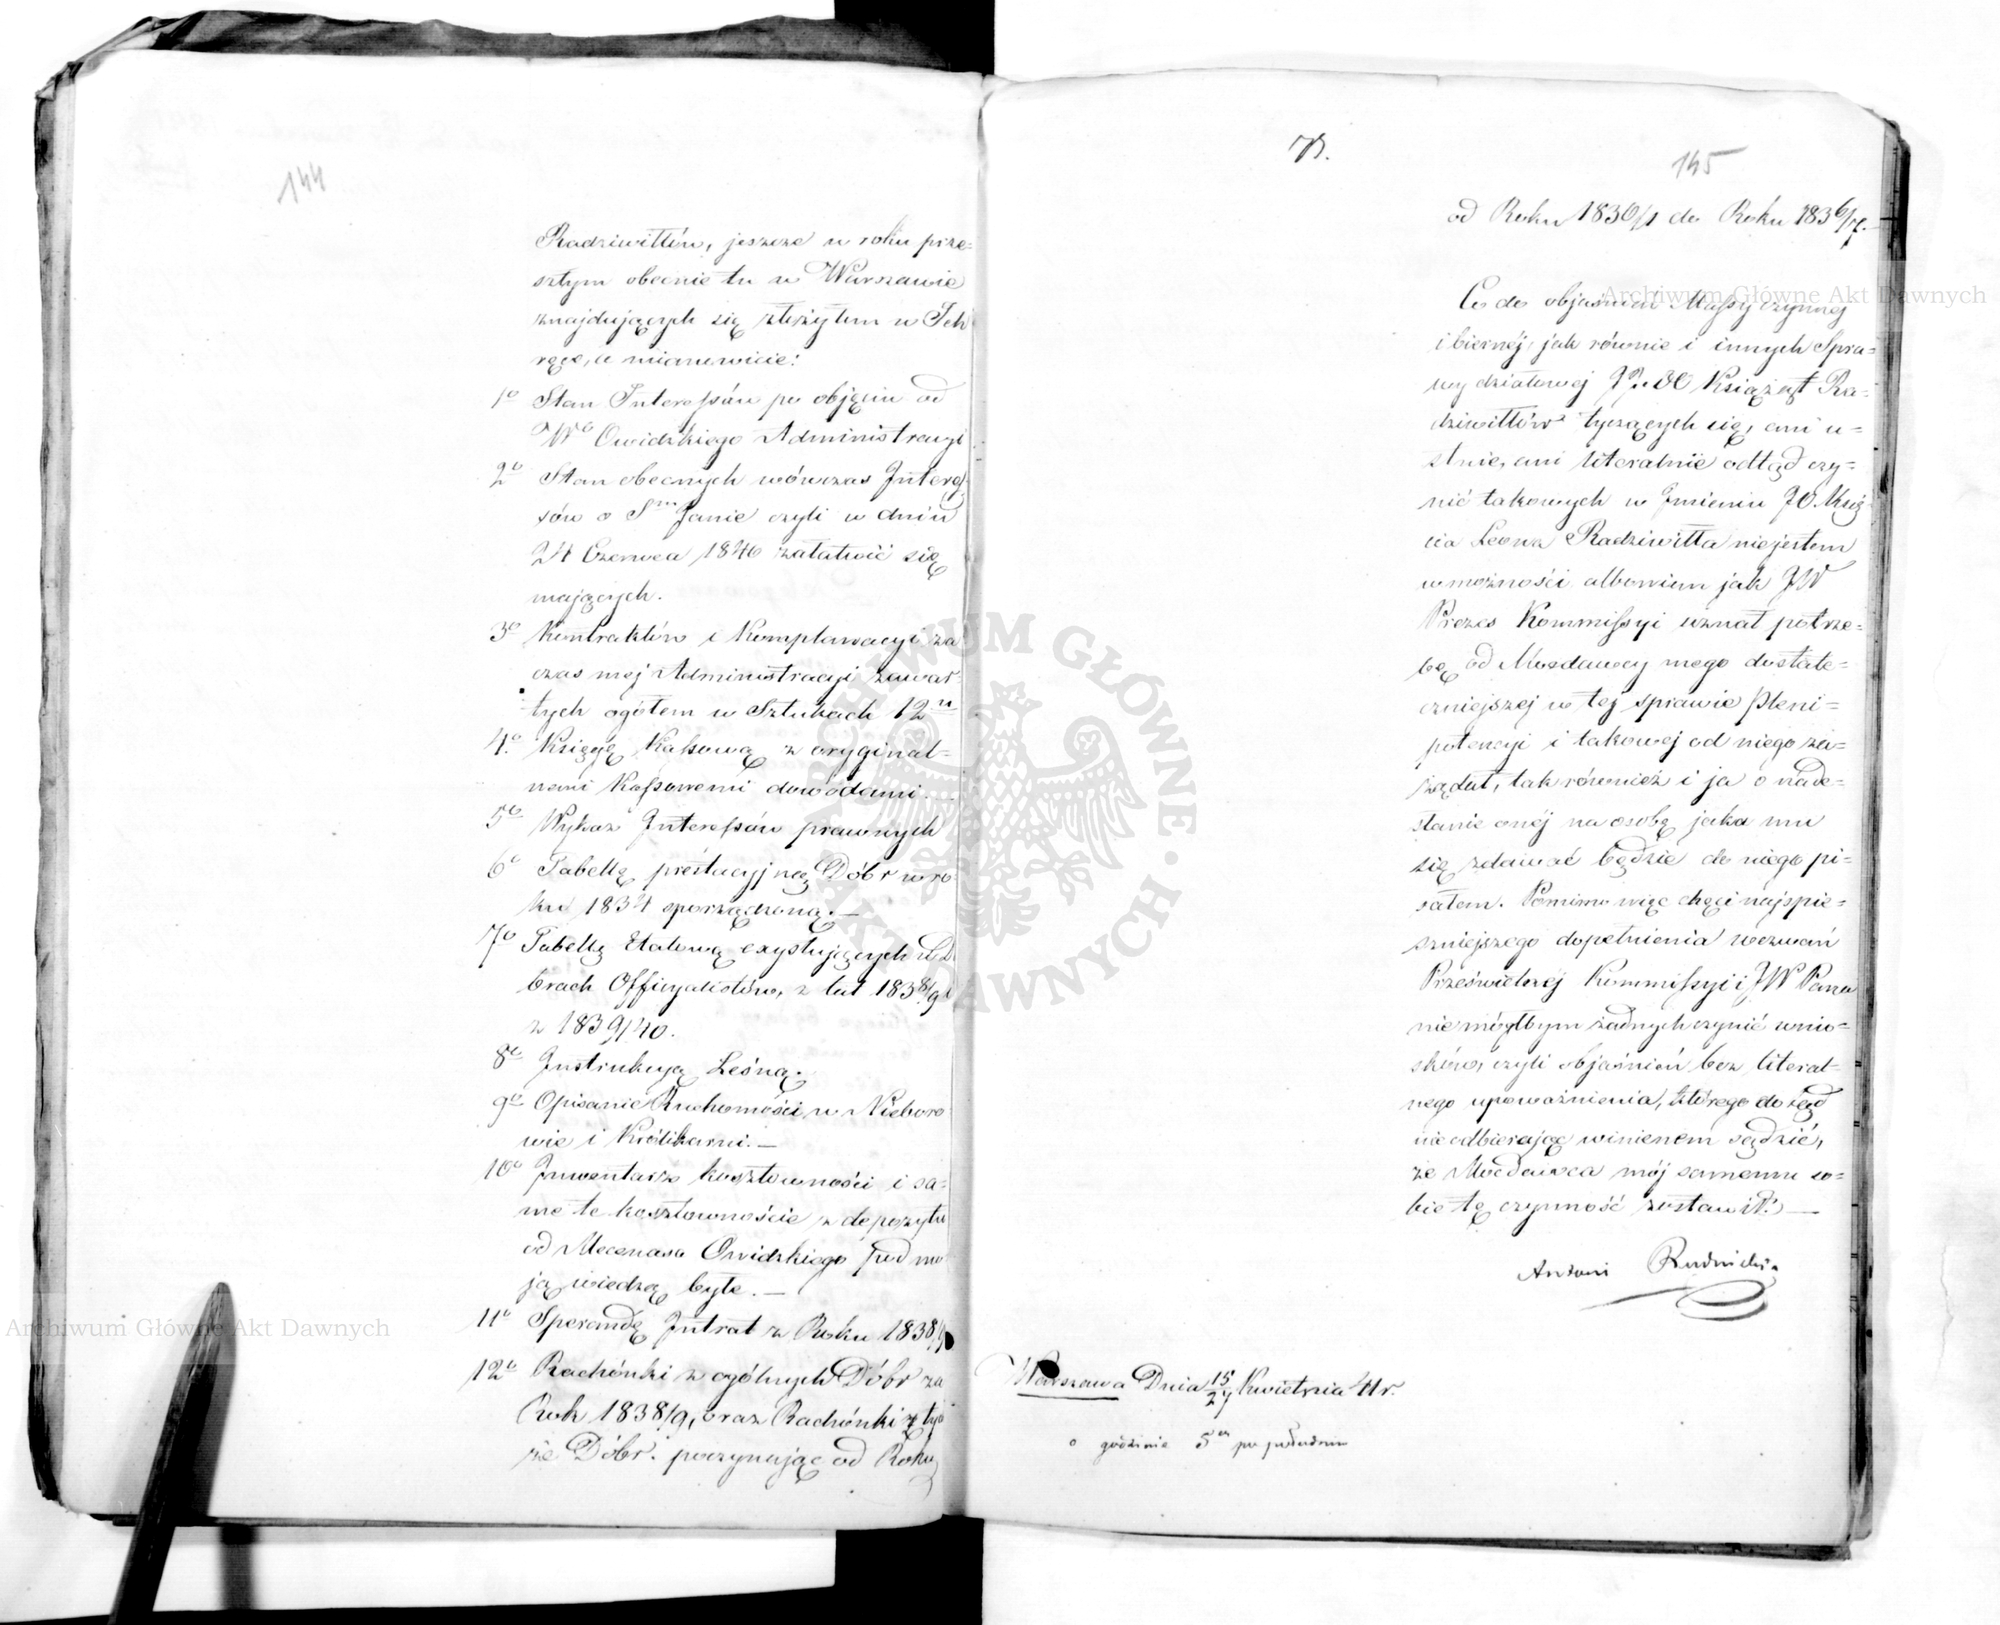 144
Radziwiłłów, jeszcze w roku prze=
szłym obecnie tu w Warszawie
znajdujących się złożyłem w Ich
ręce, a mianowicie:
1o Stan Interessów po objęciu od
Wo Owidzkiego Administracyi
2o Stan obecnych wówczas Interes=
sów o Sym Janie czyli w dniu
24 Czerwca 1840 załatwić się
mających.
3o Kontraktów i Komplanacyi za
czas mej Administracyi zawar=
tych ogółem w Sztukach 12u
4o Księgę Kassową z oryginal=
nemi Kassowemi dowodami.—
5o Wykaz Interessów prawnych
6o Tabellę prestacyjną Dóbr w ro=
ku 1834 sporządzoną.—
7o Tabellę Etatową exystujących w Do
brach Officyalistów, z lat 1838/9 i
z 1839/40.
8o Instrukcyą Leśną.
9o Opisanie Ruchomości w Nieboro
wie i Królikarni.—
10o Inwentarz kosztowności i sa=
me te kosztowności z depozytu
od Mecenasa Owidzkiego pod mo
ją wiedzą były.—
11o Sperandę Intrat z Roku 1838/9
12o Rachónki z ogólnych Dóbr za
Rok 1838/9, oraz Rachónki z tych
że Dóbr. poczynając od Roku
145
od Roku 1830/1 do Roku 1836/7.—
Co do objaśnień Massy czynnej
i biernéj, jak równie i innych Spra=
wy działowej Książąt Ra=
dziwiłłów tyczących się, ani u=
stnie, ani literalnie odtąd czy=
nić takowych w Imieniu JO. Księ=
cia Leona Radziwiłła nie jestem
w możności albowiem jak JW
Prezes Kommissyi uznał potrze=
bę od Mocdawcy mego dostate=
czniejszej w tej sprawie Pleni=
potencyi i takowej od niego za=
żądał, tak również i ja o nade=
słanie onéj na osobę jaka mu
się zdawać będzie do niego pi=
sałem. Pomimo więc chęci najspie=
szniejszego dopełnienia wezwań
Prześwietnéj Kommissyi i JW Pana
nie mógłbym żadnych czynić wnio=
sków, czyli objaśnień bez literal=
nego upoważnienia, którego dotąd
nie odbierając winienem sądzić,
że Mocdawca mój samemu so=
bie tę czynność zostawił.—
Antoni Rudnicki
Warszawa Dnia 15/27 Kwietnia 41 r.
o godzinie 5ej po południu
Archiwum Główne Akt Dawnych
Archiwum Główne Akt Dawnych
ARCHIWUM GŁÓWNE · AKT DAWNYCH ·